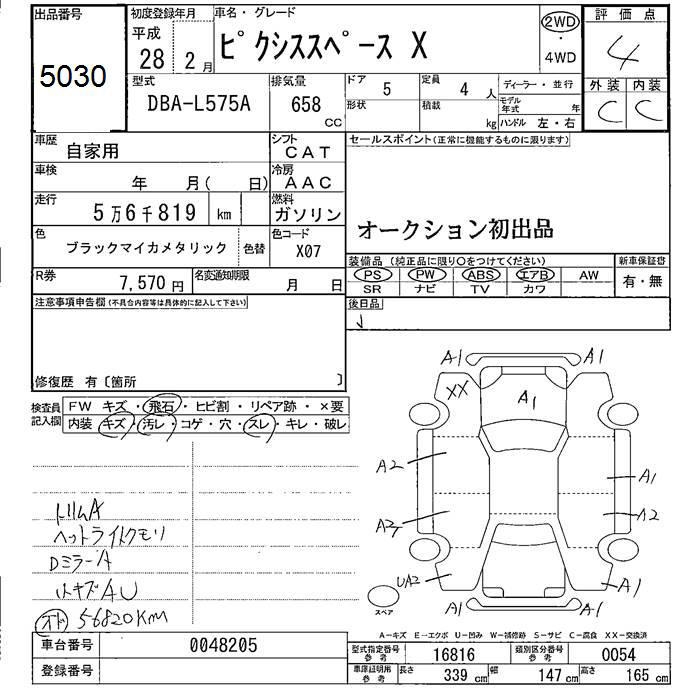 出品番号
5030
初度登録年月
平成
28 2月
車名・グレード
ピクシススペース X
2WD
・
4WD
評価点
4
外装 内装
C C
型式
DBA-L575A
排気量
658
CC
ドア 5
定員 4 人
形状
積載 kg
ディーラー・並行
モデル年式 年
ハンドル 左・右
車歴
自家用
シフト
CAT
車検
年 月( 日)
冷房
AAC
走行
5万6千819 km
燃料
ガソリン
色
ブラックマイカメタリック
色替
色コード
X07
R券
7,570 円
名変通知期限
月 日
セールスポイント(正常に機能するものに限ります)
オークション初出品
装備品(純正品に限り○をつけてください)
新車保証書
PS PW ABS エアB AW
SR ナビ TV カワ
有・無
後日品
注意事項申告欄(不具合内容等は具体的に記入して下さい)
修復歴 有〔箇所 〕
検査員
記入欄
FW キズ・飛石・ヒビ割・リペア跡・×要
内装 キズ・汚レ・コゲ・穴・スレ・キレ・破レ
トリムA
ヘッドライトクモリ
DミラーA
小キズAU
オド 56820KM
A1 A1
XX
A1
A2
A1
A2
A2
UA2
A1
A1 A1
スペア
A-キズ E-エクボ U-凹み W-補修跡 S-サビ C-腐食 XX-交換済
車台番号 0048205
登録番号
型式指定番号
参考
16816
類別区分番号
参考
0054
車庫証明用
参考
長さ 339 cm
幅 147 cm
高さ 165 cm